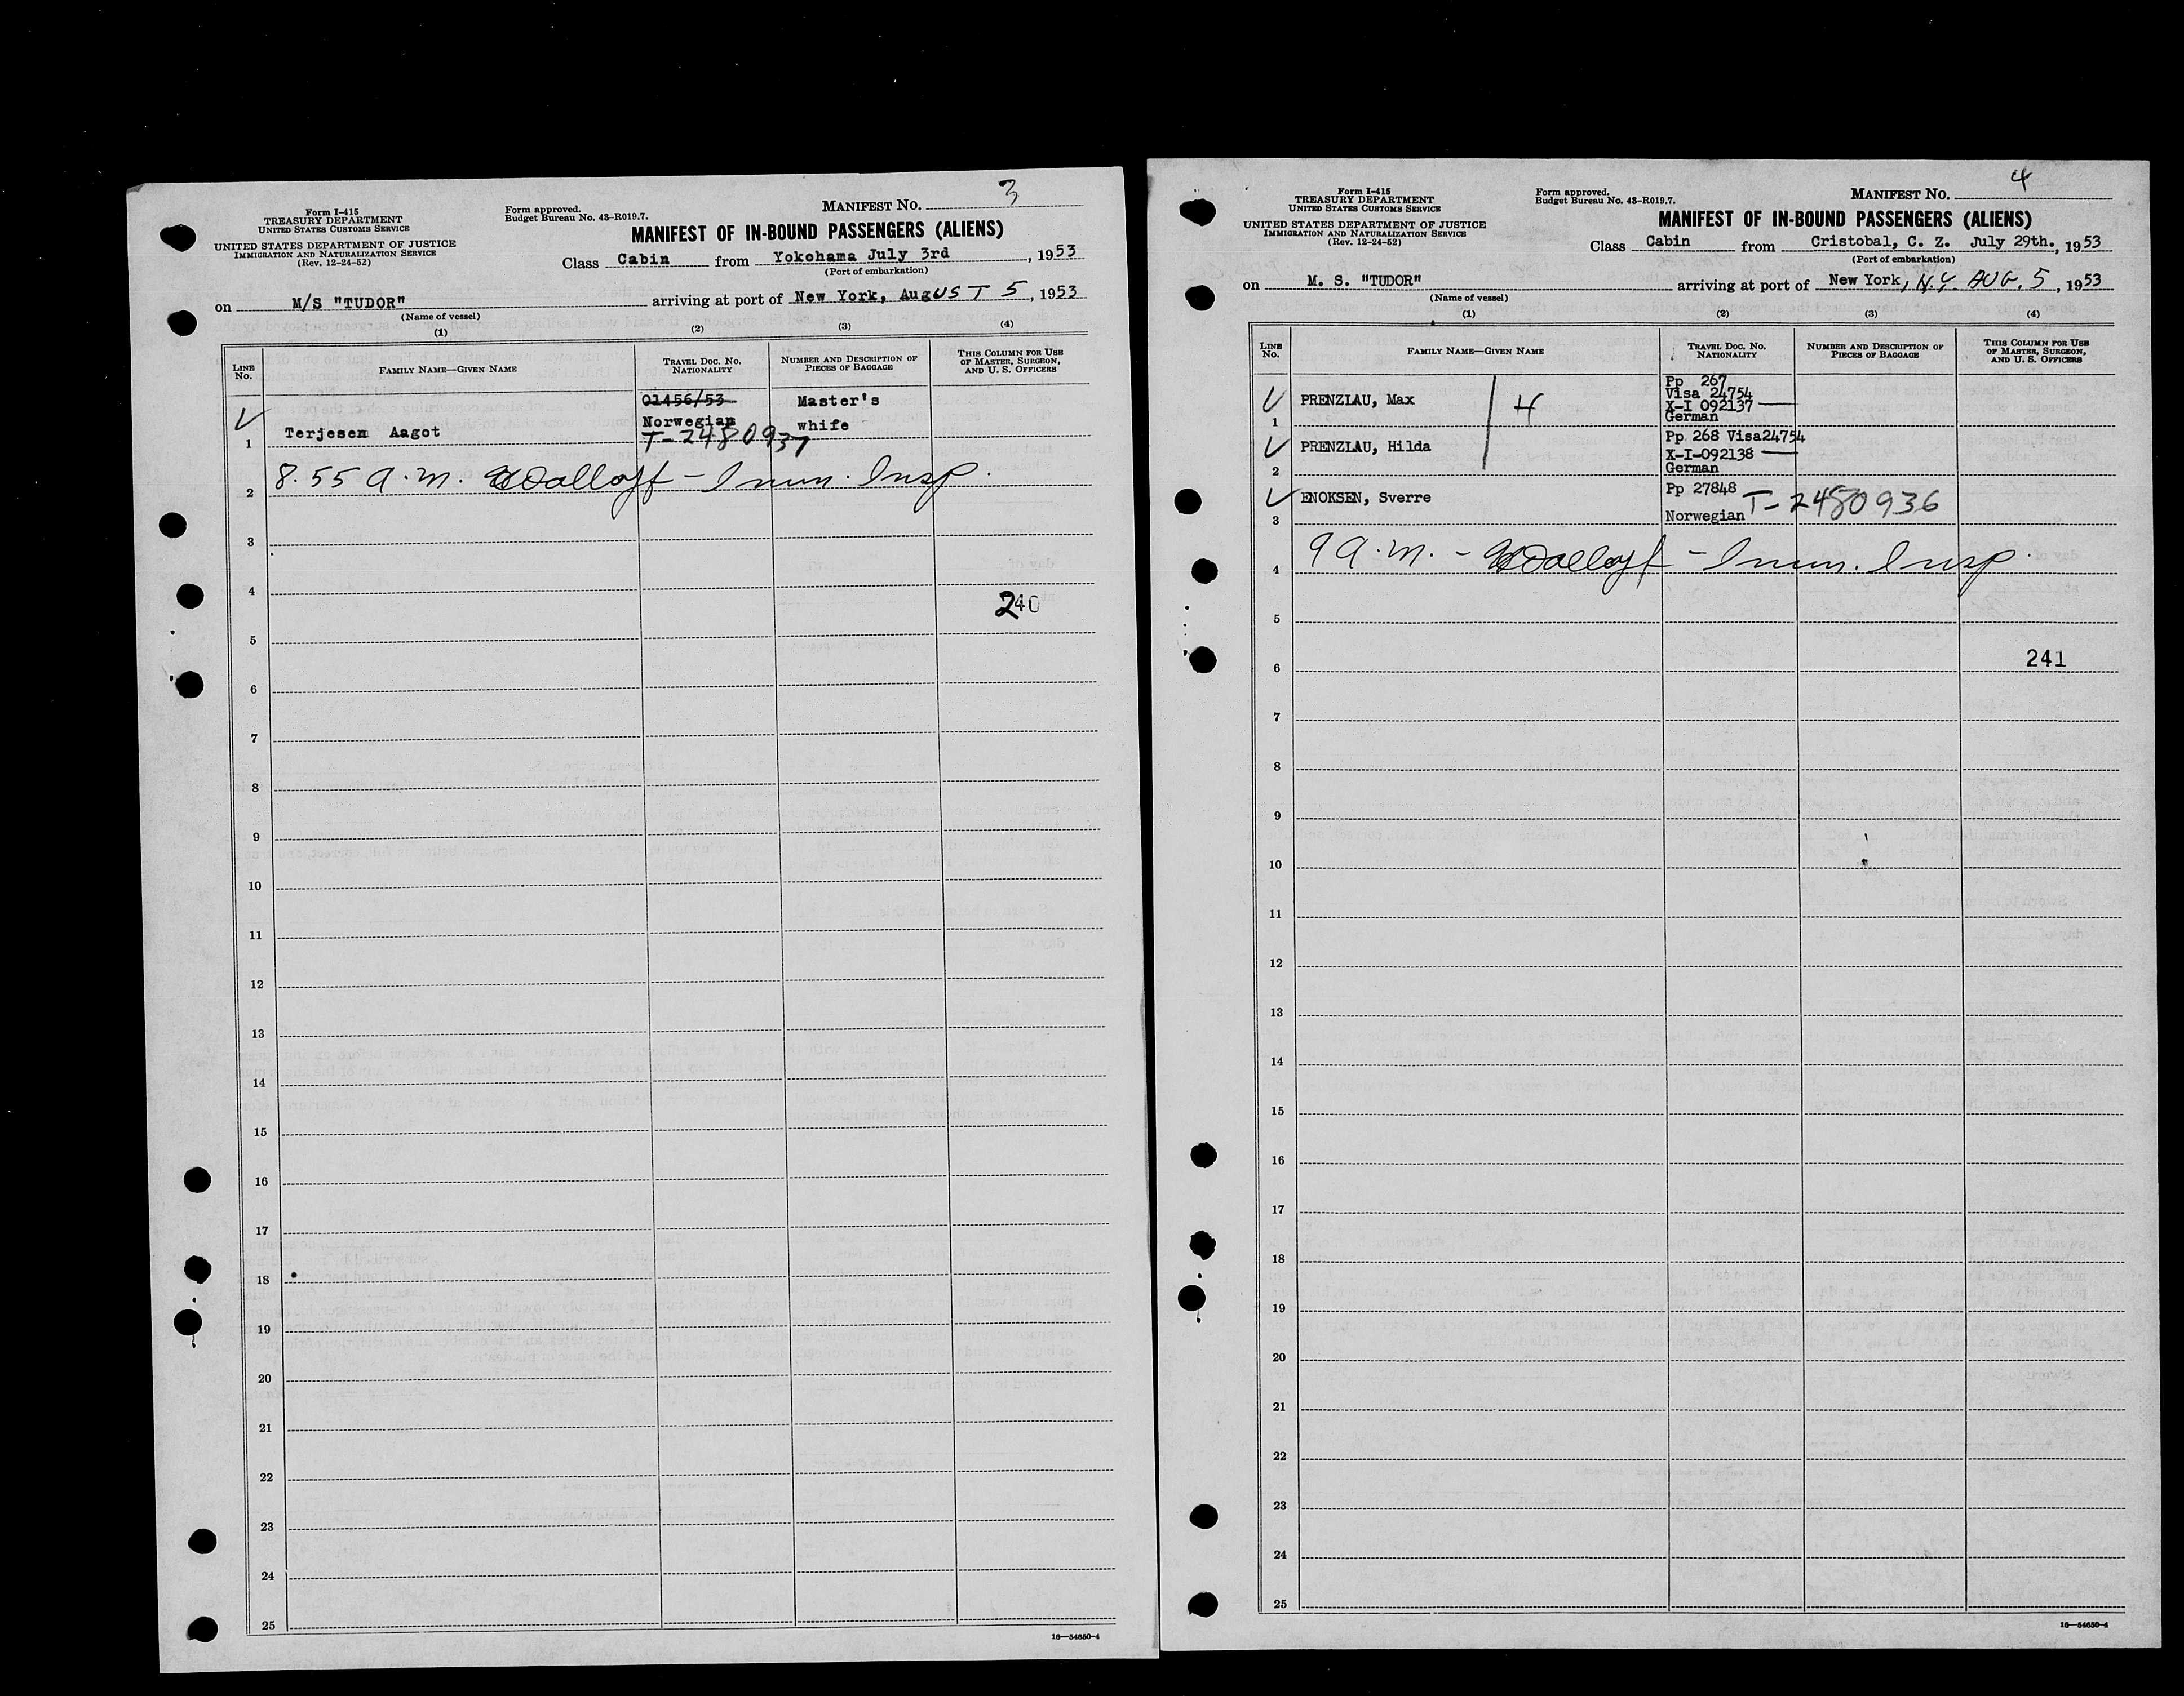 3
Form I-415
TREASURY DEPARTMENT
UNITED STATES CUSTOMS SERVICE
UNITED STATES DEPARTMENT OF JUSTICE
IMMIGRATION AND NATURALIZATION SERVICE
(Rev. 12-24-52)
Form approved.
Budget Bureau No. 43-R019.7.
MANIFEST No.
MANIFEST OF IN-BOUND PASSENGERS (ALIENS)
Class Cabin from Yokohama July 3rd, 1953
(Port of embarkation)
on M/S "TUDOR" arriving at port of New York, AugUST 5, 1953
(Name of vessel)
(1) (2) (3) (4)
LINE No.
FAMILY NAME—GIVEN NAME
TRAVEL DOC. No. NATIONALITY
NUMBER AND DESCRIPTION OF PIECES OF BAGGAGE
THIS COLUMN FOR USE OF MASTER, SURGEON, AND U. S. OFFICERS
01456/53 Master's
Norwegian whife
1 Terjesen Aagot T-2480937
2 8.55 a.m. - Imm. Insp.
3
4
240
5
6
7
8
9
10
11
12
13
14
15
16
17
18
19
20
21
22
23
24
25
16—54650-4
4
Form I-415
TREASURY DEPARTMENT
UNITED STATES CUSTOMS SERVICE
UNITED STATES DEPARTMENT OF JUSTICE
IMMIGRATION AND NATURALIZATION SERVICE
(Rev. 12-24-52)
Form approved.
Budget Bureau No. 43-R019.7.
MANIFEST No.
MANIFEST OF IN-BOUND PASSENGERS (ALIENS)
Class Cabin from Cristobal, C. Z. July 29th., 1953
(Port of embarkation)
on M. S. "TUDOR" arriving at port of New York, N.Y. AUG. 5, 1953
(Name of vessel)
(1) (2) (3) (4)
LINE No.
FAMILY NAME—GIVEN NAME
TRAVEL DOC. No. NATIONALITY
NUMBER AND DESCRIPTION OF PIECES OF BAGGAGE
THIS COLUMN FOR USE OF MASTER, SURGEON, AND U. S. OFFICERS
Pp 267
Visa 24754
PRENZLAU, Max 4 X-I 092137
1 German
Pp 268 Visa24754
PRENZLAU, Hilda X-I-092138
2 German
ENOKSEN, Sverre Pp 27848 T-2480936
3 Norwegian
4 9 a.m. - Imm. Insp.
5
6 241
7
8
9
10
11
12
13
14
15
16
17
18
19
20
21
22
23
24
25
16—54650-4